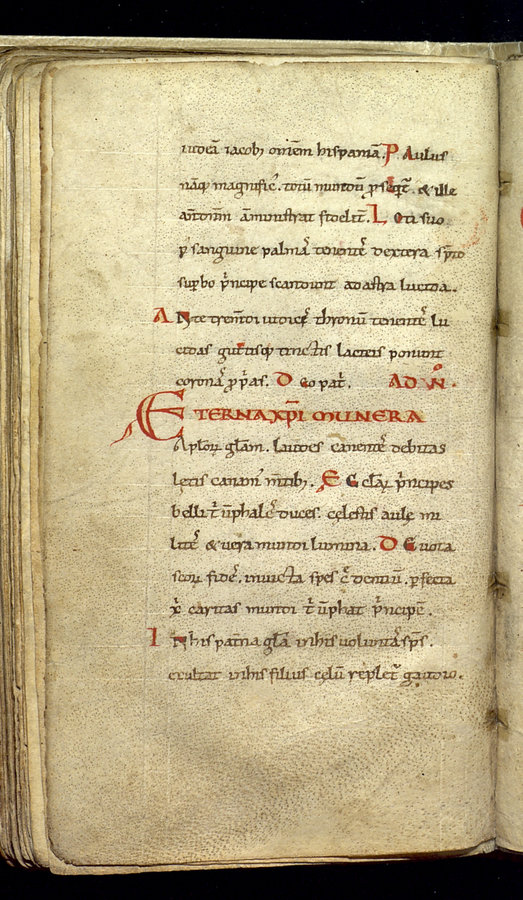 iudeā iacobꝫ omēm hispaniā. P Aulus
nāqꝫ magnificꝰ. totū mundū ꝑ seqt̄. & ille
an̄ administrat fidelit̄. L oti suo
ꝑ sanguine palmā tenent̄ dextera sp̄to
supbo p̄ncipe scandunt adastra lucida.
A Nte tremdi iudicꝭ thronū tenent̄ lu
cidas guttisqꝫ tinctis lacteis ponunt
coronā ꝓpas. D eo pat. AD N̄.
ETERNA XP̄I MUNERA
Apl̄oꝝ gl̄am. laudes canent̄ debitas
letis canamꝰ m̄tibꝫ. E Ccl̄aꝝ p̄ncipes
belli t̄ūphales duces. cęlestis aulę mi
lites & uera mundi lumina. D Euota
sc̄oꝝ fides. inuicta spes c̄dentiū. ꝑfecta
x̄ caritas mundi t̄ūphat p̄ncipē.
I N his pat̄na gl̄a inhis uoluntas sp̄s.
exultat inhis filius cęlū replet̄ gaudio.